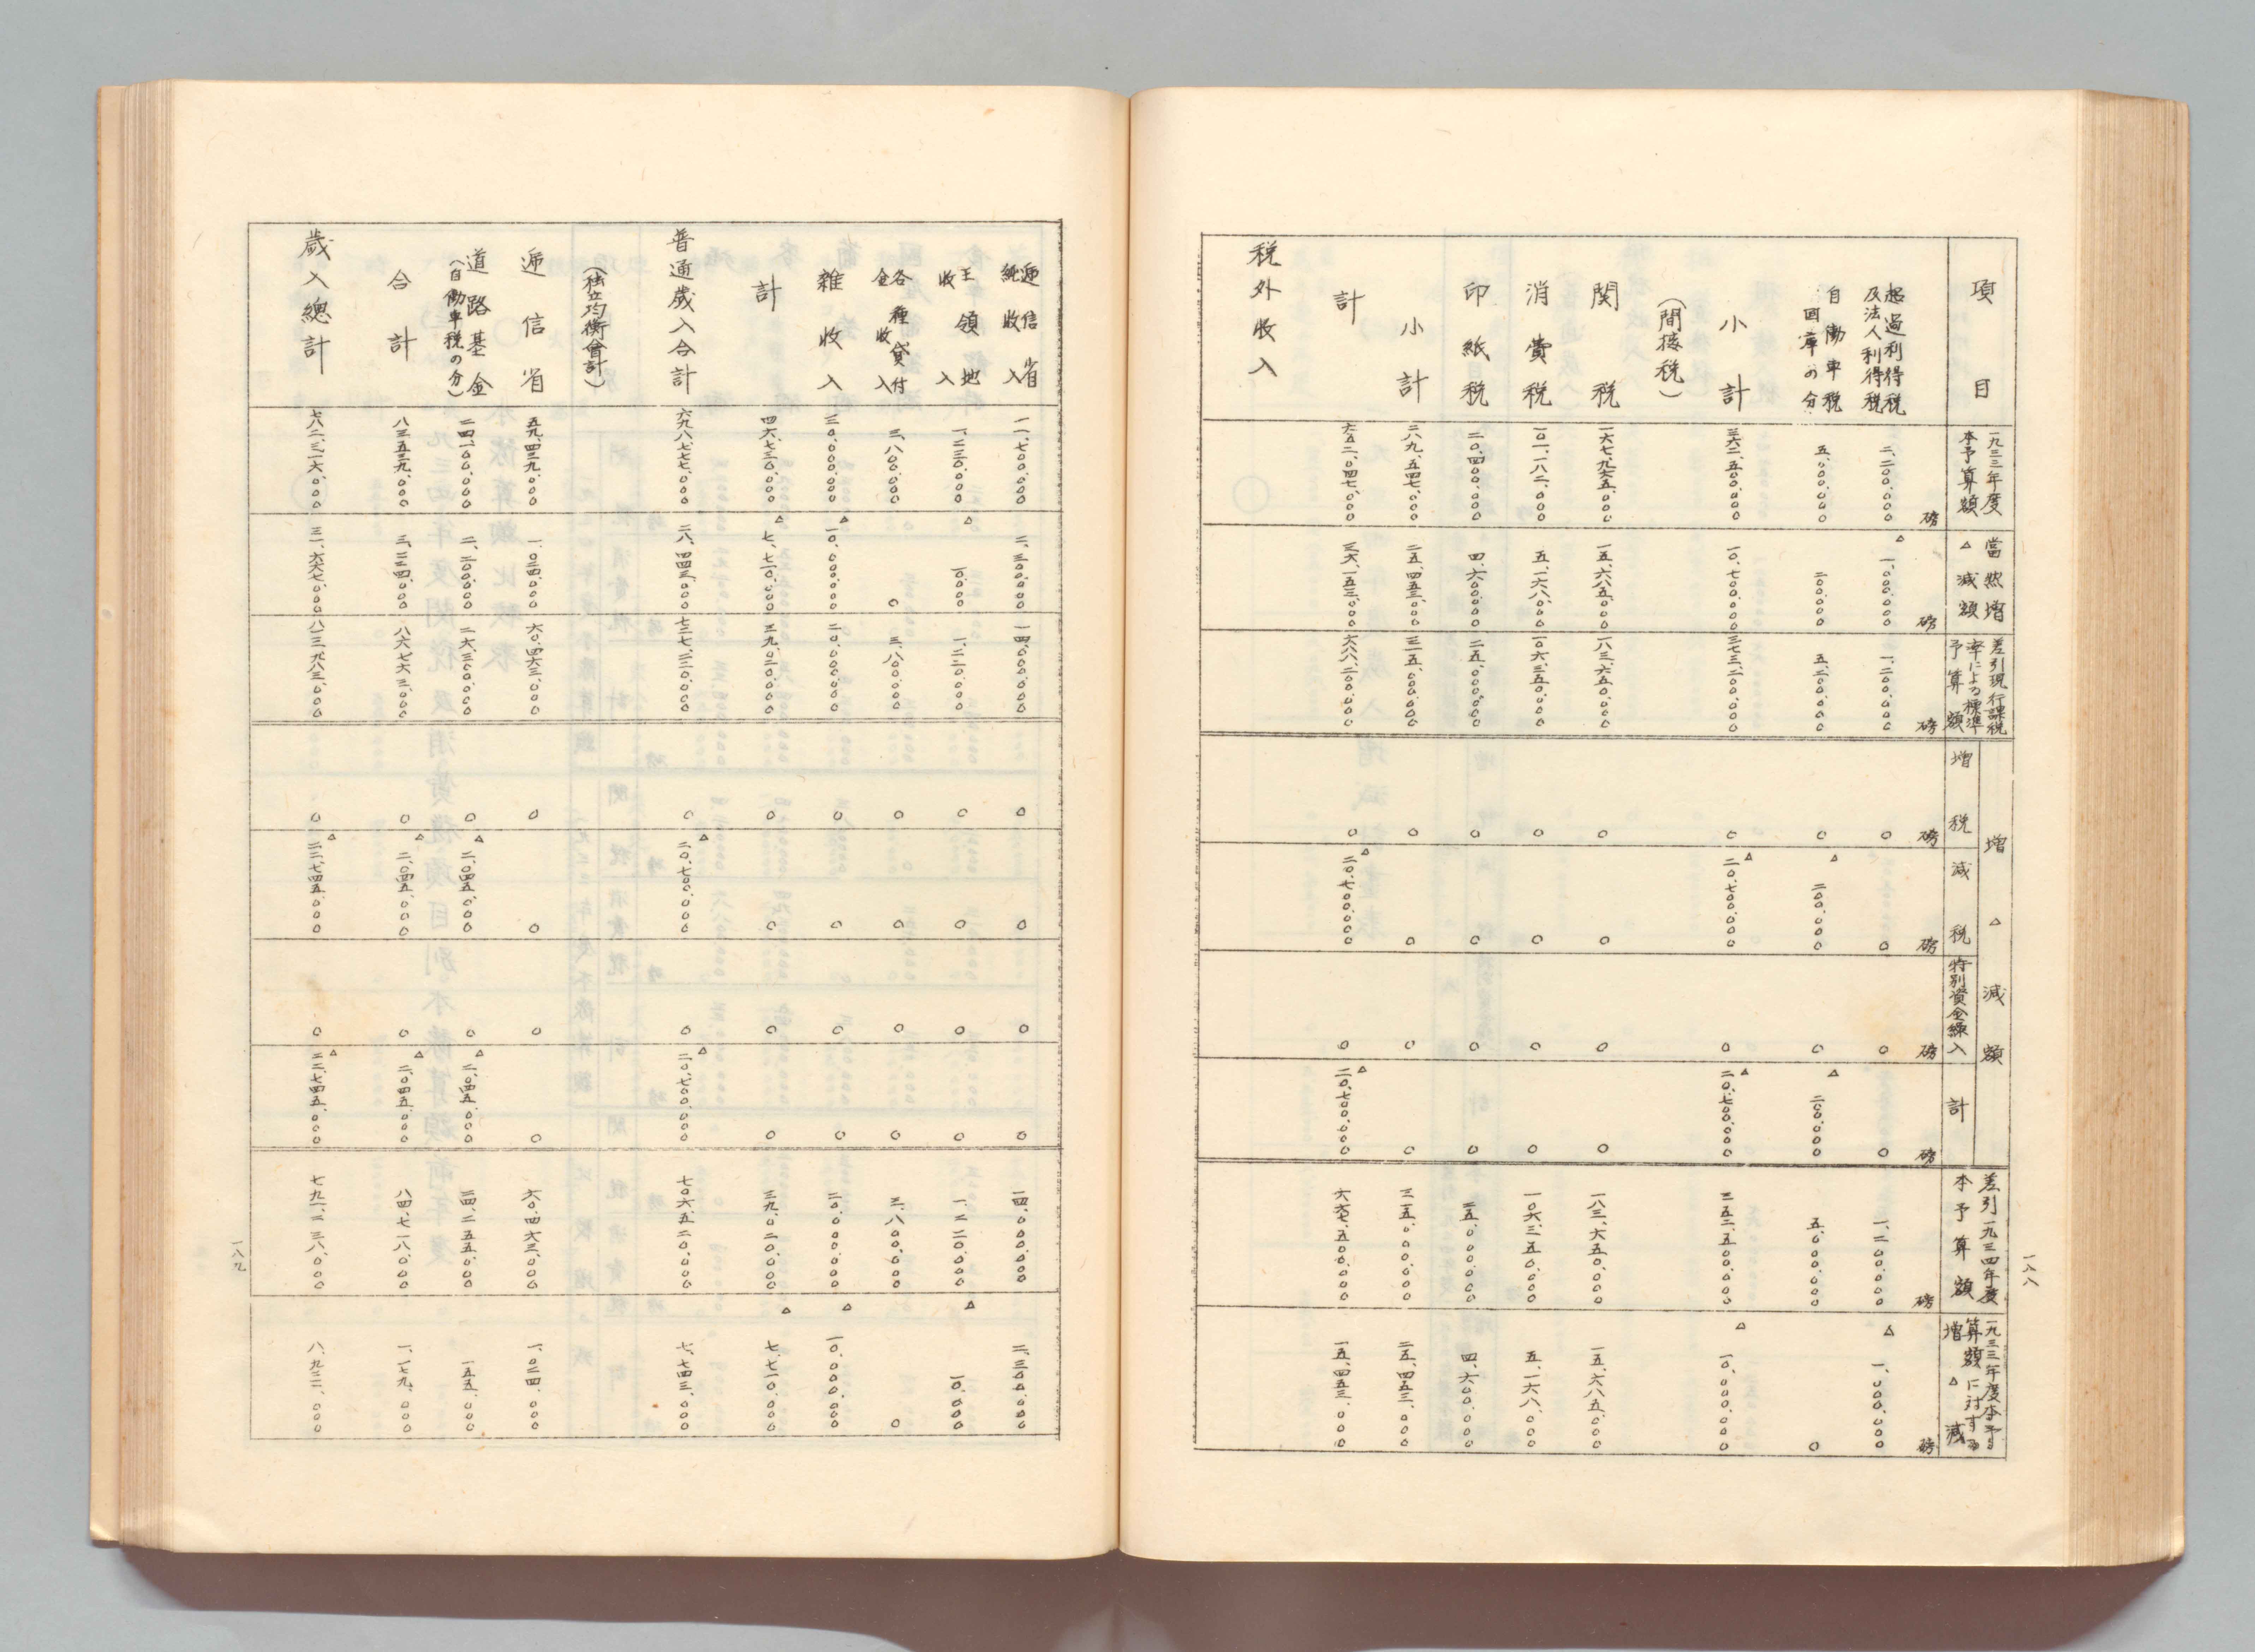 項目 一九三三年度本予算額 當然増△減額 差引現行課税率による標準予算額 増△減額 増税 減税 特別資金繰入 計 差引一九三四年度本予算額 一九三三年度本予算額に対する増△減
磅 磅 磅 磅 磅 磅 磅 磅 磅
超過利得税及法人利得税 二、二〇〇、〇〇〇 △一、〇〇〇、〇〇〇 一、二〇〇、〇〇〇 〇 〇 〇 〇 一、二〇〇、〇〇〇 △一、〇〇〇、〇〇〇
自働車税国庫の分 五、〇〇〇、〇〇〇 二〇〇、〇〇〇 五、二〇〇、〇〇〇 〇 △二〇〇、〇〇〇 〇 △二〇〇、〇〇〇 五、〇〇〇、〇〇〇 〇
小計 三六二、五〇〇、〇〇〇 一〇、七〇〇、〇〇〇 三七三、二〇〇、〇〇〇 〇 △二〇、七〇〇、〇〇〇 〇 △二〇、七〇〇、〇〇〇 三五二、五〇〇、〇〇〇 △一〇、〇〇〇、〇〇〇
（間接税）
関税 一六七、九六五、〇〇〇 一五、六八五、〇〇〇 一八三、六五〇、〇〇〇 〇 〇 〇 〇 一八三、六五〇、〇〇〇 一五、六八五、〇〇〇
消費税 一〇一、一八二、〇〇〇 五、一六八、〇〇〇 一〇六、三五〇、〇〇〇 〇 〇 〇 〇 一〇六、三五〇、〇〇〇 五、一六八、〇〇〇
印紙税 二〇、四〇〇、〇〇〇 四、六〇〇、〇〇〇 二五、〇〇〇、〇〇〇 〇 〇 〇 〇 二五、〇〇〇、〇〇〇 四、六〇〇、〇〇〇
小計 二八九、五四七、〇〇〇 二五、四五三、〇〇〇 三一五、〇〇〇、〇〇〇 〇 〇 〇 〇 三一五、〇〇〇、〇〇〇 二五、四五三、〇〇〇
計 六五二、〇四七、〇〇〇 三六、一五三、〇〇〇 六八八、二〇〇、〇〇〇 〇 △二〇、七〇〇、〇〇〇 〇 △二〇、七〇〇、〇〇〇 六六七、五〇〇、〇〇〇 一五、四五三、〇〇〇
税外收入
一八八
逓信省純收入 一一、七〇〇、〇〇〇 二、三〇〇、〇〇〇 一四、〇〇〇、〇〇〇 〇 〇 〇 〇 一四、〇〇〇、〇〇〇 二、三〇〇、〇〇〇
王領地收入 一、二三〇、〇〇〇 △一〇、〇〇〇 一、二二〇、〇〇〇 〇 〇 〇 〇 一、二二〇、〇〇〇 △一〇、〇〇〇
各種貸付金收入 三、八〇〇、〇〇〇 〇 三、八〇〇、〇〇〇 〇 〇 〇 〇 三、八〇〇、〇〇〇 〇
雜收入 三〇、〇〇〇、〇〇〇 △一〇、〇〇〇、〇〇〇 二〇、〇〇〇、〇〇〇 〇 〇 〇 〇 二〇、〇〇〇、〇〇〇 △一〇、〇〇〇、〇〇〇
計 四六、七三〇、〇〇〇 △七、七一〇、〇〇〇 三九、〇二〇、〇〇〇 〇 〇 〇 〇 三九、〇二〇、〇〇〇 △七、七一〇、〇〇〇
普通歳入合計 六九八、七七七、〇〇〇 二八、四四三、〇〇〇 七二七、二二〇、〇〇〇 〇 △二〇、七〇〇、〇〇〇 〇 △二〇、七〇〇、〇〇〇 七〇六、五二〇、〇〇〇 七、七四三、〇〇〇
（独立均衡會計）
逓信省 五九、四三九、〇〇〇 一、〇二四、〇〇〇 六〇、四六三、〇〇〇 〇 〇 〇 〇 六〇、四六三、〇〇〇 一、〇二四、〇〇〇
道路基金（自働車税の分） 二四、一〇〇、〇〇〇 二、二〇〇、〇〇〇 二六、三〇〇、〇〇〇 〇 △二、〇四五、〇〇〇 〇 △二、〇四五、〇〇〇 二四、二五五、〇〇〇 一五五、〇〇〇
合計 八三、五三九、〇〇〇 三、二二四、〇〇〇 八六、七六三、〇〇〇 〇 △二、〇四五、〇〇〇 〇 △二、〇四五、〇〇〇 八四、七一八、〇〇〇 一、一七九、〇〇〇
歳入總計 七八二、三一六、〇〇〇 三一、六六七、〇〇〇 八一三、九八三、〇〇〇 〇 △二二、七四五、〇〇〇 〇 △二二、七四五、〇〇〇 七九一、二三八、〇〇〇 八、九二二、〇〇〇
一八九